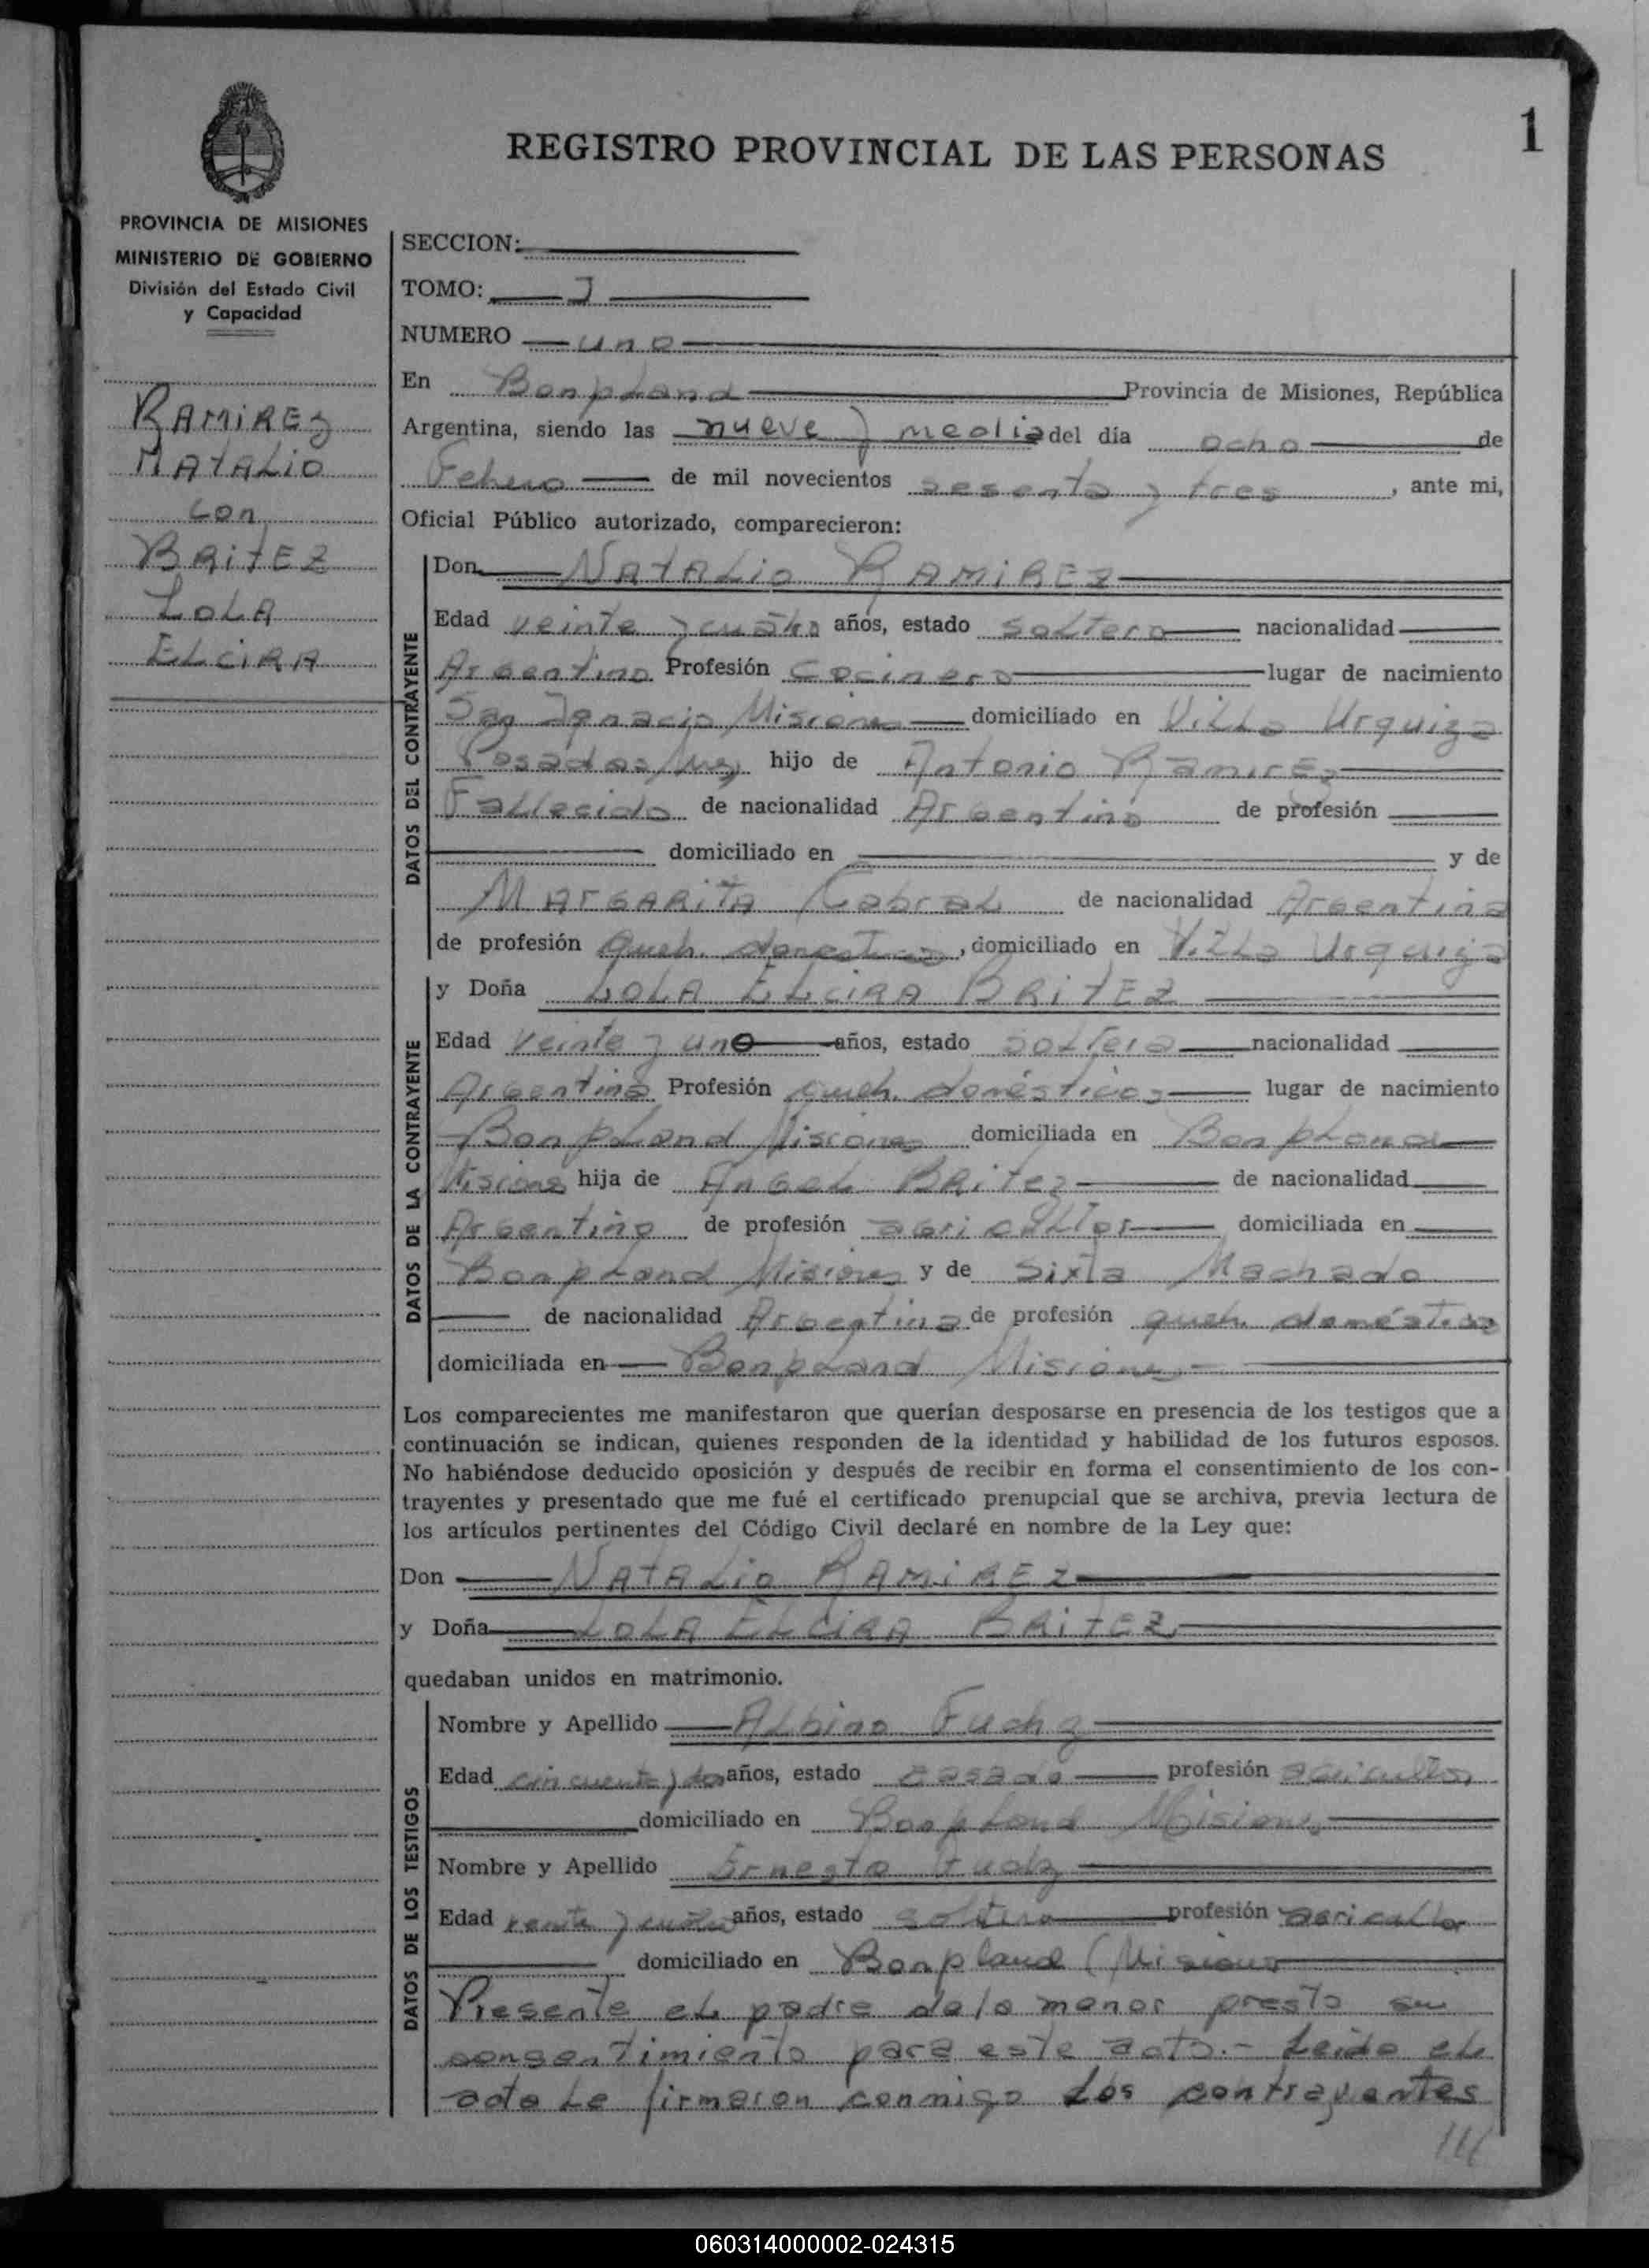 1
REGISTRO PROVINCIAL DE LAS PERSONAS
PROVINCIA DE MISIONES
MINISTERIO DE GOBIERNO
División del Estado Civil
y Capacidad
RAMIREZ
NATALIO
con
BRITEZ
LOLA
ELCIRA
SECCION:
TOMO: I
NUMERO uno
En Bonpland Provincia de Misiones, República
Argentina, siendo las nueve y media del día ocho de
Febrero de mil novecientos sesenta y tres, ante mi,
Oficial Público autorizado, comparecieron:
DATOS DEL CONTRAYENTE
Don NATALIO RAMIREZ
Edad veinte y cuatro años, estado soltero nacionalidad
Argentino Profesión Cocinero lugar de nacimiento
San Ignacio Misiones domiciliado en Villa Urquiza
Posadas Mnes hijo de Antonio Ramirez
Fallecido de nacionalidad Argentino de profesión
domiciliado en y de
MARGARITA Cabral de nacionalidad Argentina
de profesión queh. domesticos, domiciliado en Villa Urquiza
DATOS DE LA CONTRAYENTE
y Doña LOLA ELCIRA BRITEZ
Edad Veinte y uno años, estado soltera nacionalidad
Argentina Profesión queh. domésticos lugar de nacimiento
Bonpland Misiones domiciliada en Bonpland
Misiones hija de Angel BRitez de nacionalidad
Argentino de profesión agricultor domiciliada en
Bonpland Misiones y de Sixta Machado
de nacionalidad Argentina de profesión queh. domésticos
domiciliada en Bonpland Misiones
Los comparecientes me manifestaron que querían desposarse en presencia de los testigos que a
continuación se indican, quienes responden de la identidad y habilidad de los futuros esposos.
No habiéndose deducido oposición y después de recibir en forma el consentimiento de los con-
trayentes y presentado que me fué el certificado prenupcial que se archiva, previa lectura de
los artículos pertinentes del Código Civil declaré en nombre de la Ley que:
Don NATALIO RAMIREZ
y Doña LOLA ELCIRA BRITEZ
quedaban unidos en matrimonio.
DATOS DE LOS TESTIGOS
Nombre y Apellido Albino Fuchz
Edad cincuenta y dos años, estado casado profesión agricultor
domiciliado en Bonpland Misiones
Nombre y Apellido Ernesto
Edad años, estado soltero profesión agricultor
domiciliado en Bonpland (Misiones
Presente el padre de la menor presto su
consentimiento para este acto.- Leida el
acta le firmaron conmigo los contrayentes
///
060314000002-024315